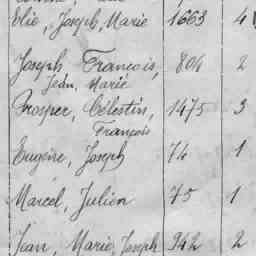 Elie, Joseph, Marie 1663 4
Joseph, François, 804 2
Jean, Marie
Prosper, Célestin, 1475 3
François
Eugène, Joseph 74 1
Marcel, Julien 75 1
Jean, Marie, Joseph 942 2